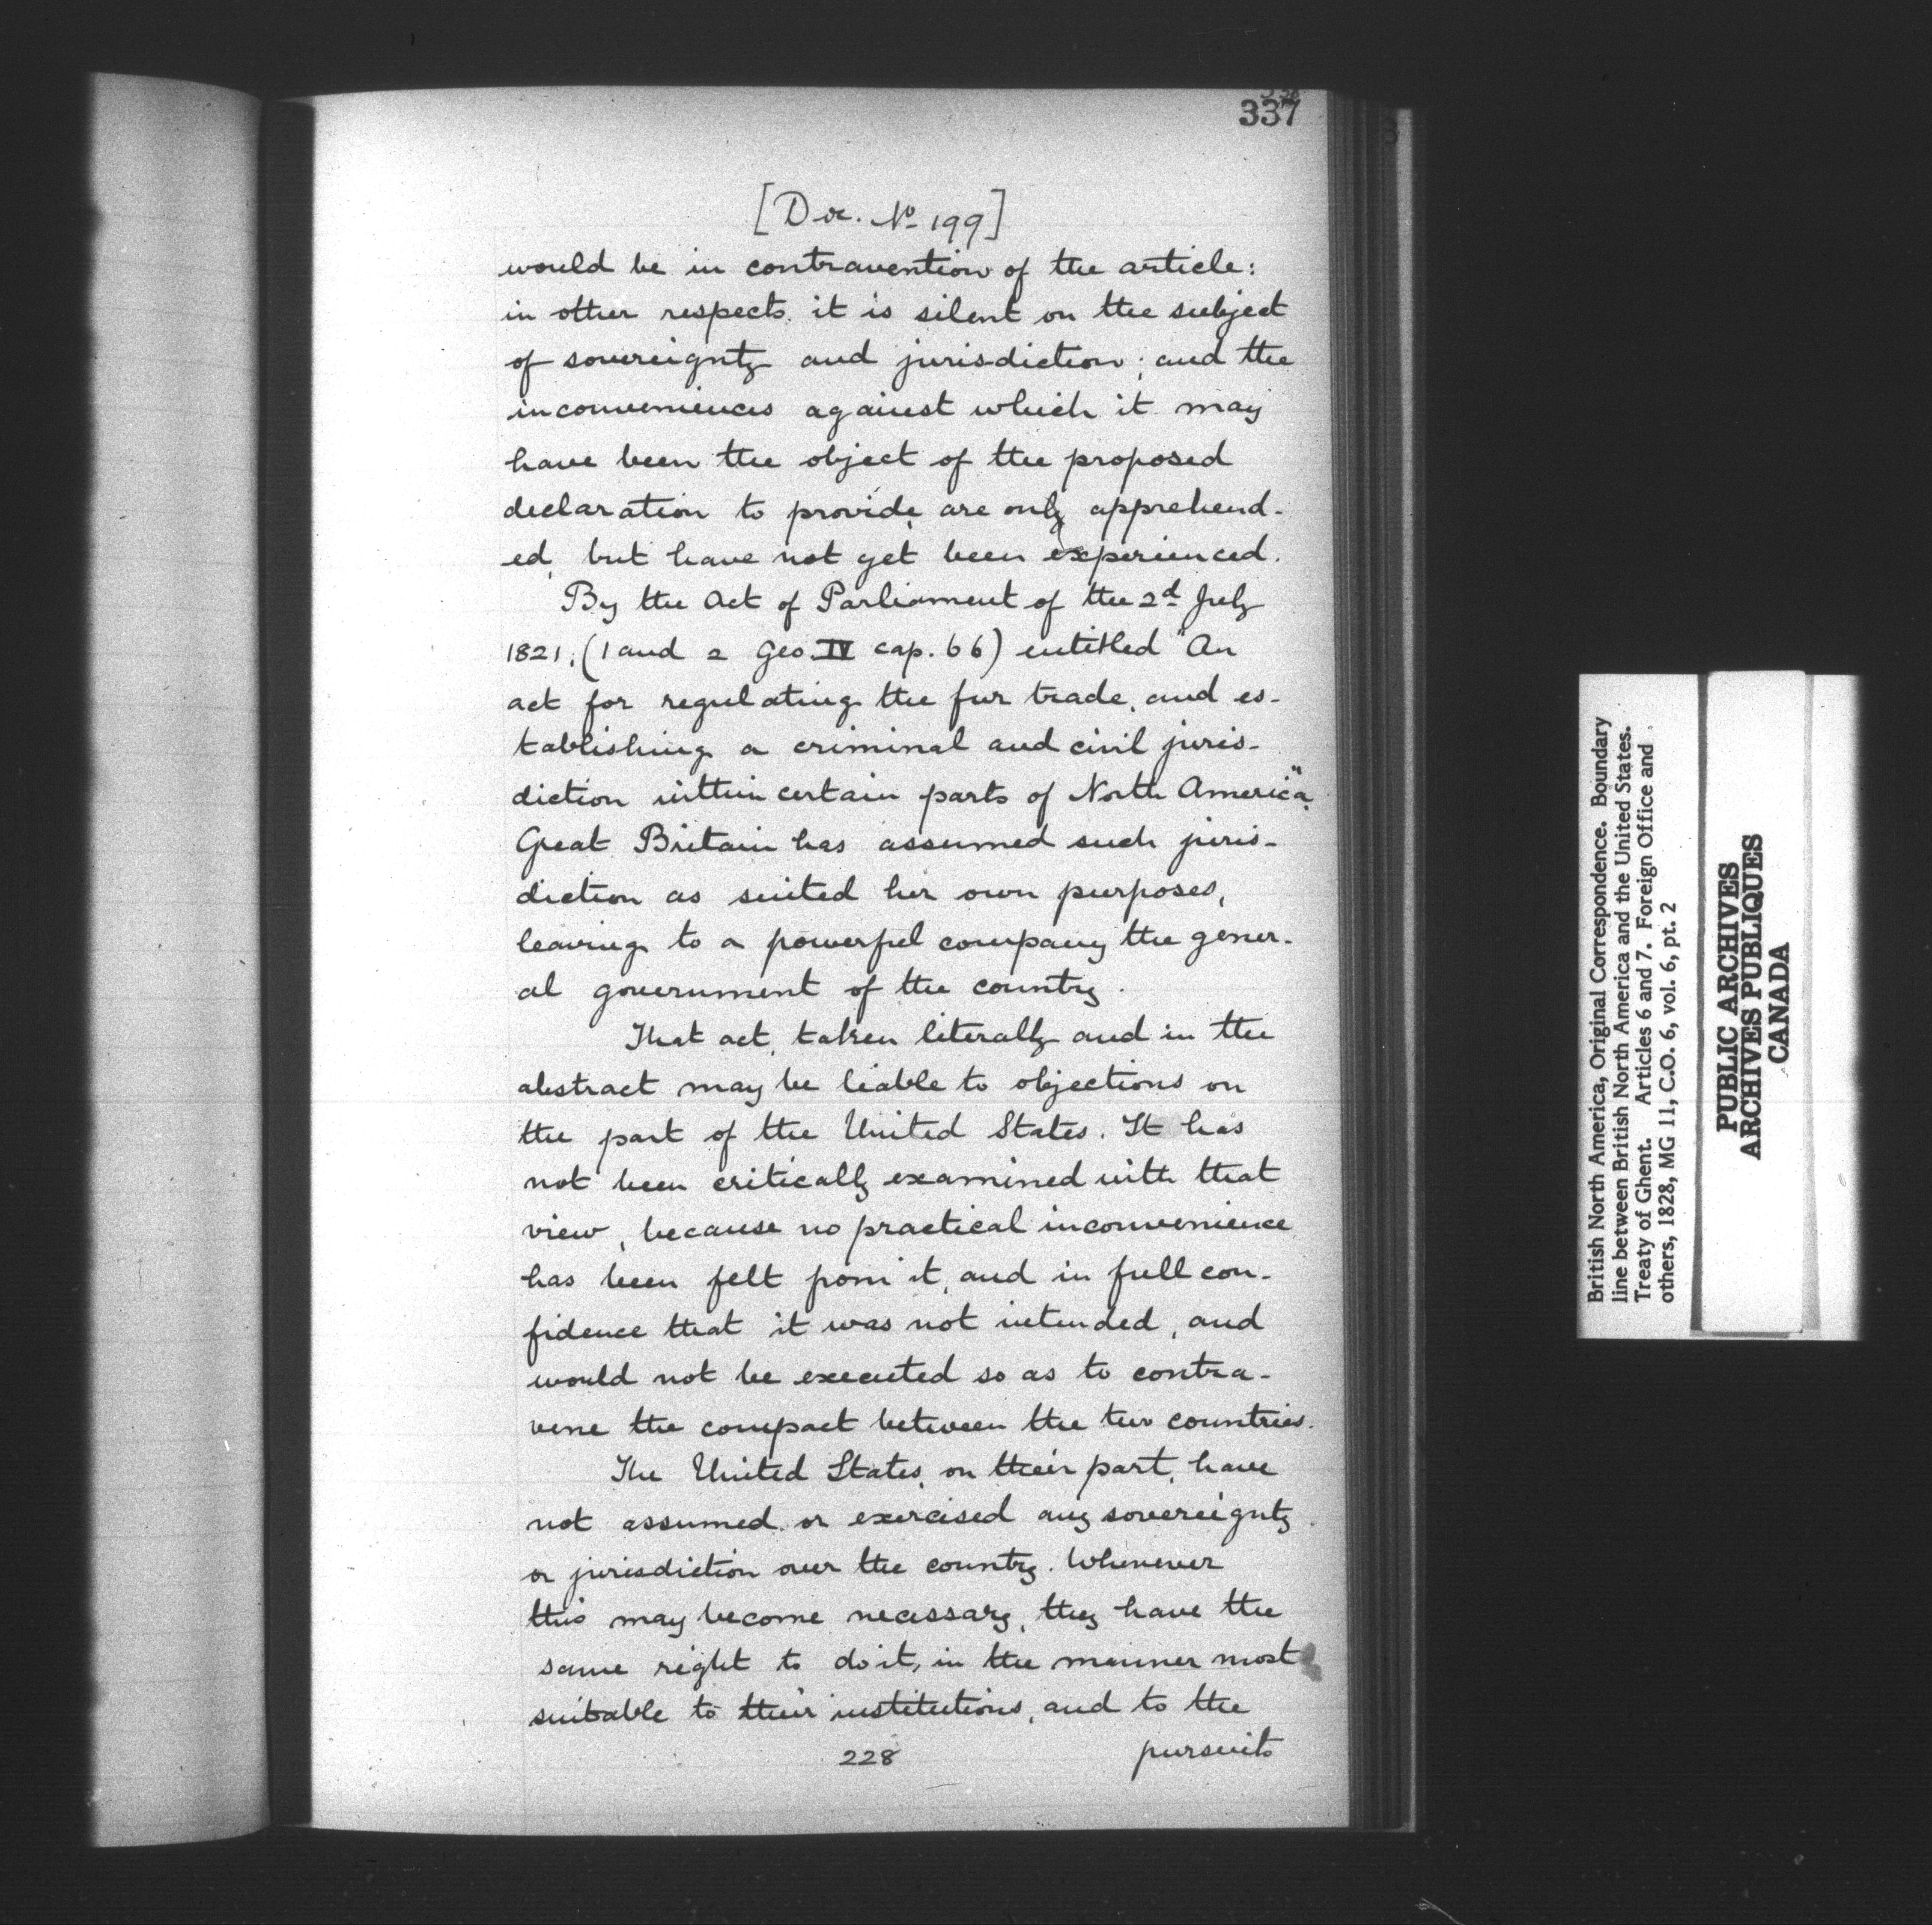 337
[Doc. No 199]
would be in contravention of the article:
in other respects, it is silent on the subject
of sovereignty and jurisdiction; and the
inconveniences against which it may
have been the object of the proposed
declaration to provide, are only apprehend-
ed, but have not yet been experienced.
By the Act of Parliament of the 2d July
1821, (1 and 2 Geo. IV cap. 66) entitled "An
act for regulating the fur trade, and es-
tablishing a criminal and civil juris-
diction within certain parts of North America",
Great Britain has assumed such juris-
diction as suited her own purposes,
leaving to a powerful company the gener-
al government of the country.
That act, taken literally and in the
abstract may be liable to objections on
the part of the United States. It has
not been critically examined with that
view, because no practical inconvenience
has been felt from it, and in full con-
fidence that it was not intended, and
would not be executed so as to contra-
vene the compact between the two countries.
The United States, on their part, have
not assumed or exercised any sovereignty
or jurisdiction over the country. Whenever
this may become necessary, they have the
same right to do it, in the manner most
suitable to their institutions, and to the
228
pursuits
British North America, Original Correspondence. Boundary
line between British North America and the United States.
Treaty of Ghent. Articles 6 and 7. Foreign Office and
others, 1828, MG 11, C.O. 6, vol. 6, pt. 2
PUBLIC ARCHIVES
ARCHIVES PUBLIQUES
CANADA